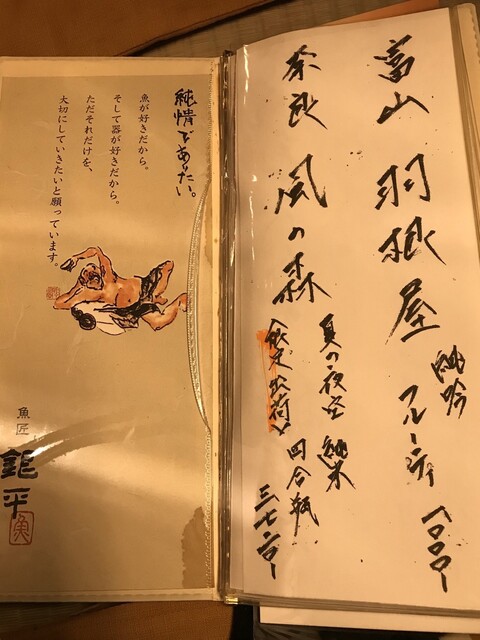 富山 羽根屋 純吟 フルーティ 一〇〇〇
奈良 風の森
夏の夜空 純米
限定出荷 四合瓶
純情でありたい。
魚が好きだから。
そして器が好きだから。
ただそれだけを、
大切にしていきたいと願っています。
魚匠
平
魚